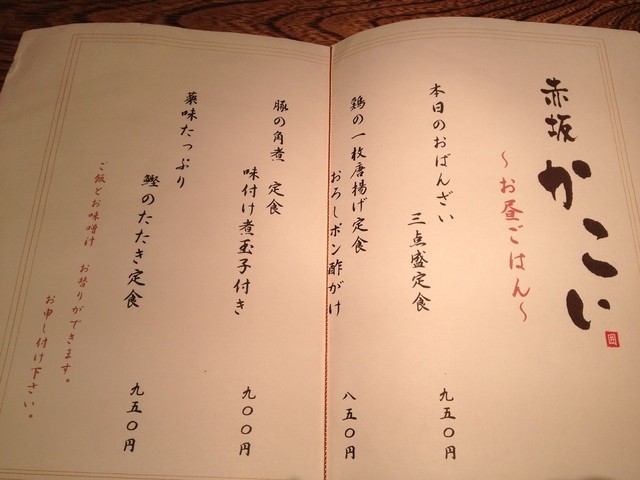 赤坂 かこい
囲
～お昼ごはん～
本日のおばんざい
三点盛定食 九五〇円
鶏の一枚唐揚げ定食
おろしポン酢がけ 八五〇円
豚の角煮 定食
味付け煮玉子付き 九〇〇円
薬味たっぷり
鰹のたたき定食 九五〇円
ご飯とお味噌汁 お替りができます。
お申し付け下さい。